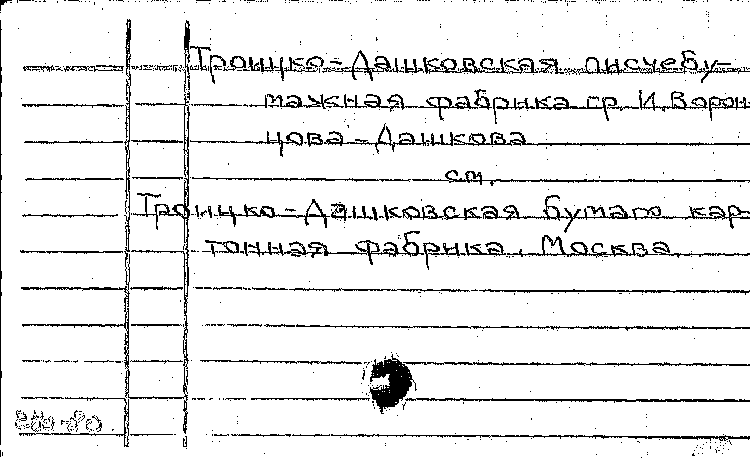 Троицко-Дашковская писчебу-
мажная фабрика гр. И. Ворон-
цова-Дашкова
см.
Троицко-Дашковская бумаго кар-
тонная фабрика. Москва.